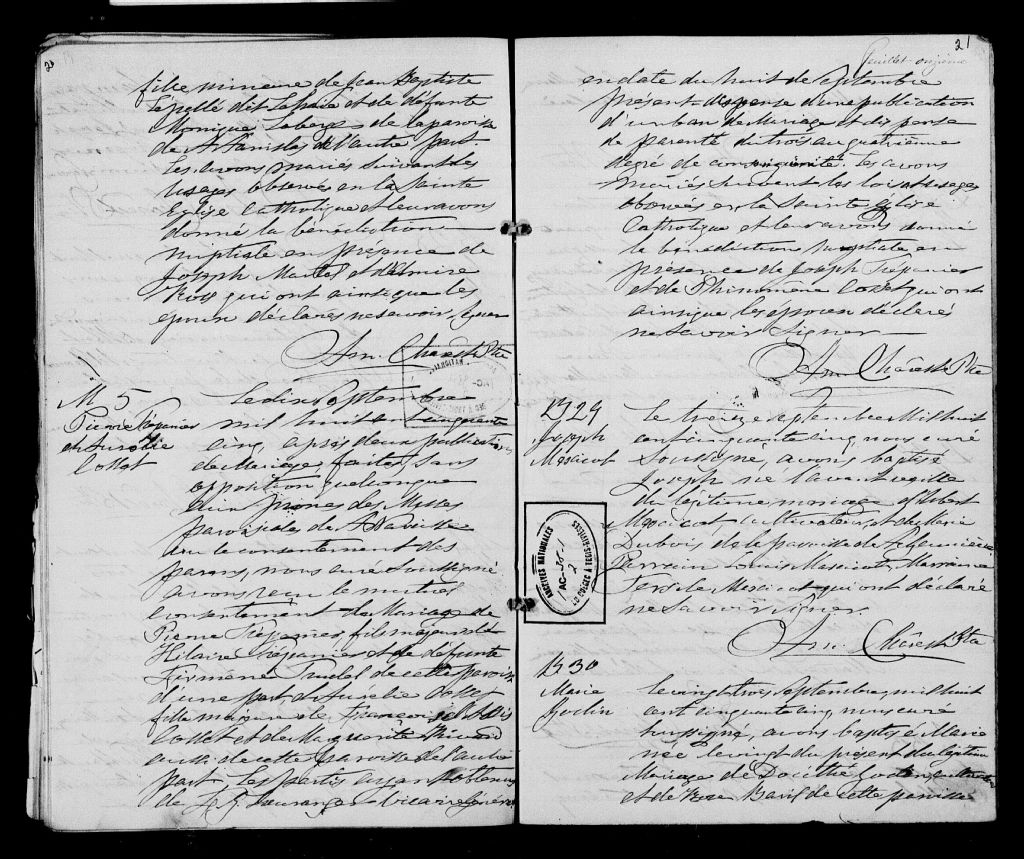 20
fille mineure de Jean Baptiste
et de défunte
Monique Laberge de la paroisse
de St Stanislas de l'autre part.
Les avons mariés suivant les
usages observés en la Sainte
Eglise Catholique et leur avons
donné la bénédiction
nuptiale en présence de
Joseph Martel et
Roy qui ont ainsi que les
époux déclarés ne savoir signer
Ptre
M 5
Pierre Trépanier
et Aurélie
Cosset
Le dix Septembre
mil huit cent cinquante
cinq, après deux publications
de Mariage faites sans
opposition quelconque
aux prônes des Messes
paroissiales de St Narcisse
vu le consentement des
parens, nous curé soussigné
avons reçu le mutuel
consentement de Mariage de
Pierre Trépanier, fils majeur de
Hilaire Trépanier et de défunte
Trudel de cette paroisse
d'une part, et Aurélie Cosset
fille majeure de François
Cosset et de Marguerite
aussi de cette paroisse de l'autre
part, les parties ayant obtenu
de vicaire Général
21
feuillet onzième
en date du huit de Septembre
présent dispense d'une publication
d'un ban de Mariage et dispense
de parenté du trois au quatrième
degré de consanguinité. les avons
Mariés suivant les lois et usages
observés en la Sainte Eglise
Catholique et leur avons donné
la bénédiction nuptiale en
présence de Joseph Trépanier
et de Philomène Cosset qui ont
ainsi que les époux déclaré
ne savoir signer
Ptre
B 29
Joseph
Massicot
Le treize Septembre Mil huit
cent cinquante cinq, nous curé
Soussigné, avons baptisé
Joseph né l'avant veille
du légitime mariage d'Albert
Massicot, cultivateur, et de Marie
Dubois de la paroisse de
Parrain Louis Massicot, Marraine
Massicot qui ont déclaré
ne savoir signer.
Ptre
ARCHIVES NATIONALES
DU QUÉBEC À TROIS-RIVIÈRES
B 30
Marie
Godin
Le vingt trois Septembre, mil huit
cent cinquante cinq, nous curé
soussigné, avons baptisé Marie
née le vingt du présent du légitime
Mariage de Godin, cultivateur
et de Rose Baril de cette paroisse